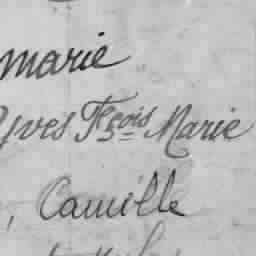 marie
Yves Fçois Marie
, Camille